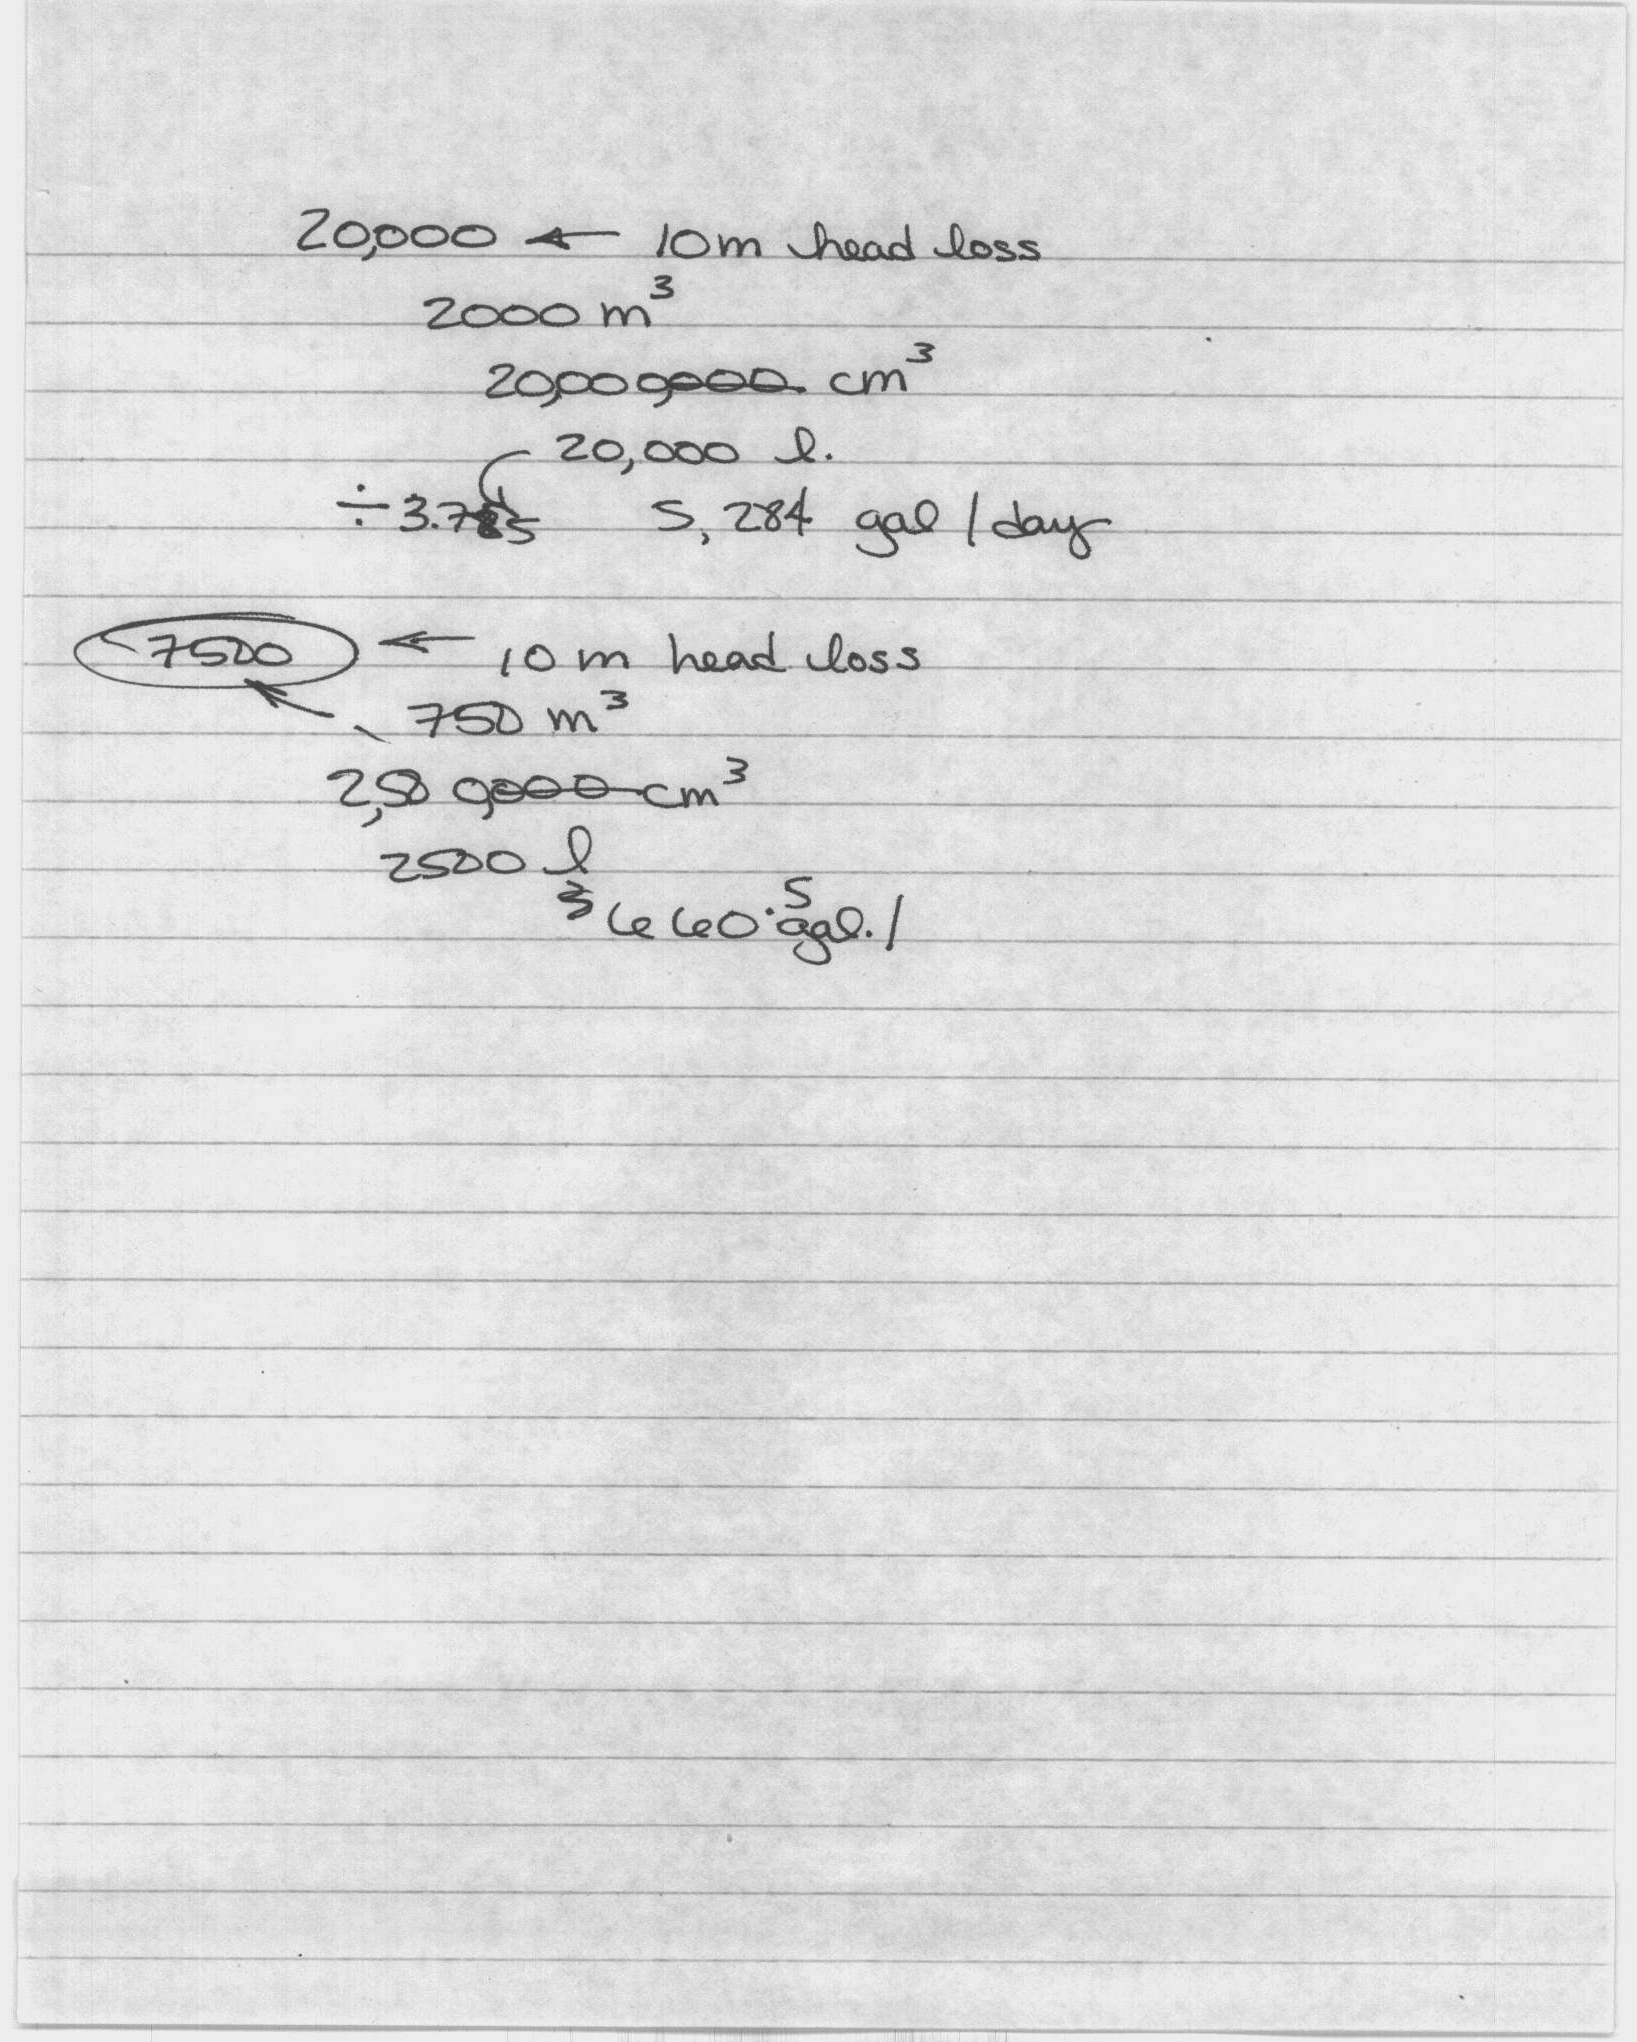 20,000 ← 10m head loss
2000 m³
20,000,000 cm³
20,000 l.
÷ 3.785 5,284 gal / day
7500 ← 10 m head loss
750 m³
2,500,000 cm³
2500 l
660.5 gal. /